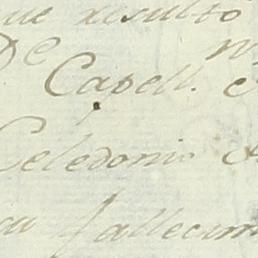 que resulto
De
Capell.
Celedonio
fallecim